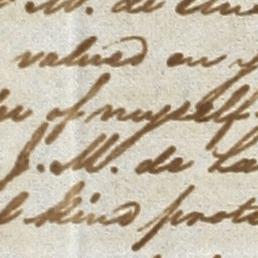 M. de
valued on
of myself
J. M. de La
kind prote